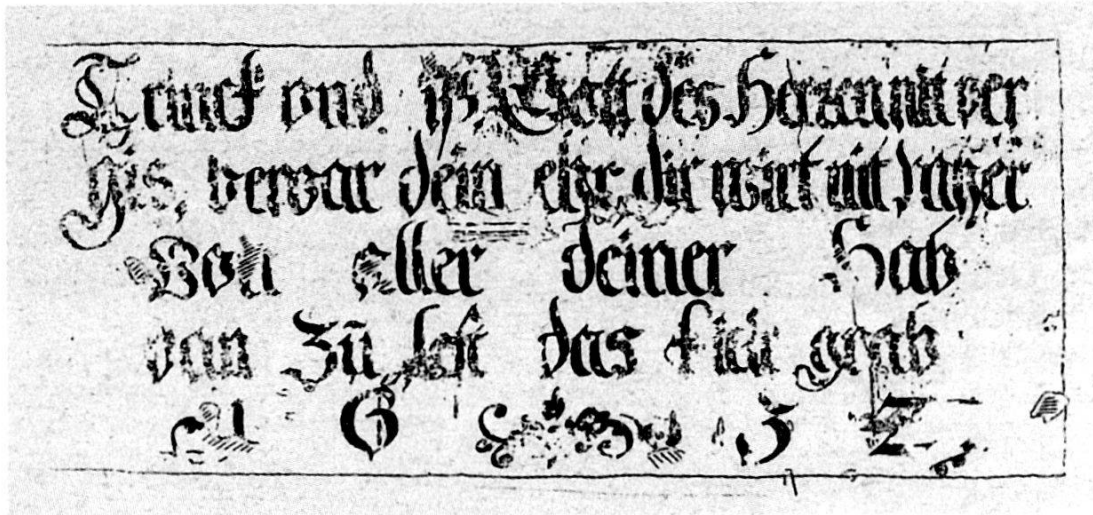 Trinck vnd iß Gott des Herren nit ver
gis, bewar dein ehr, dir wirt nit mher
Von aller deiner Hab
dan zů lest das grab
16 32